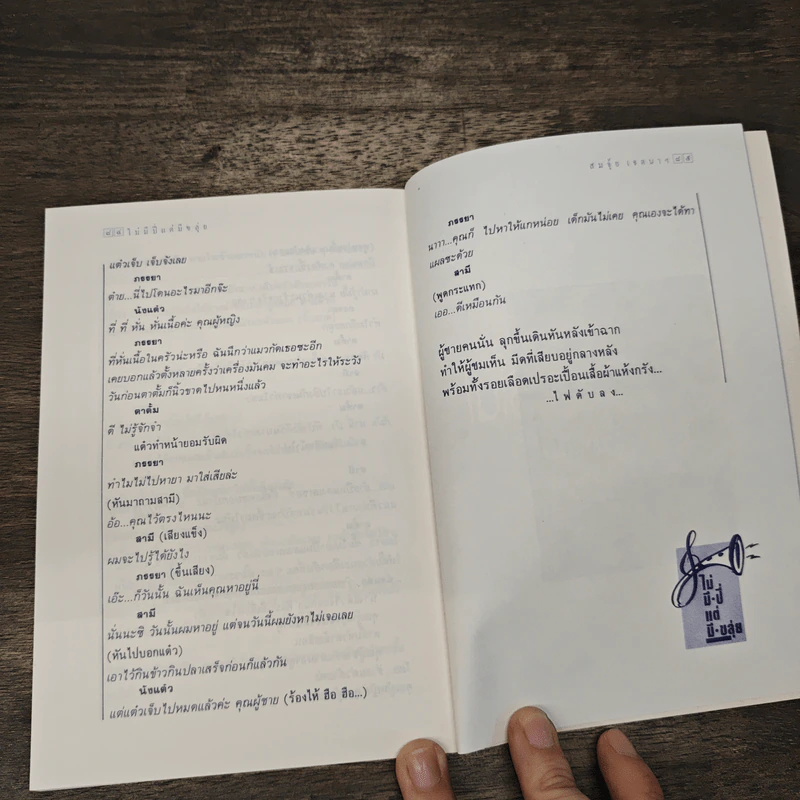 ๘๔ ไม่มีปี่แต่มีขลุ่ย
แต๋วเจ็บ เจ็บจังเลย
ภรรยา
ต๋าย...นี่ไปโดนอะไรมาอีกจ๊ะ
นังแต๋ว
ที่ ที่ หั่น หั่นเนื้อค่ะ คุณผู้หญิง
ภรรยา
ที่หั่นเนื้อในครัวน่ะหรือ ฉันนึกว่าแมวกัดเธอซะอีก
เคยบอกแล้วตั้งหลายครั้งว่าเครื่องมันคม จะทำอะไรให้ระวัง
วันก่อนตาตั้มก็นิ้วขาดไปหนหนึ่งแล้ว
ตาตั้ม
ดี ไม่รู้จักจำ
แต๋วทำหน้ายอมรับผิด
ภรรยา
ทำไมไม่ไปหายา มาใส่เสียล่ะ
(หันมาถามสามี)
อ้อ...คุณไว้ตรงไหนนะ
สามี (เสียงแข็ง)
ผมจะไปรู้ได้ยังไง
ภรรยา (ขึ้นเสียง)
เอ๊ะ...ก็วันนั้น ฉันเห็นคุณหาอยู่นี่
สามี
นั่นนะซิ วันนั้นผมหาอยู่ แต่จนวันนี้ผมยังหาไม่เจอเลย
(หันไปบอกแต๋ว)
เอาไว้กินข้าวกินปลาเสร็จก่อนก็แล้วกัน
นังแต๋ว
แต่แต๋วเจ็บไปหมดแล้วค่ะ คุณผู้ชาย (ร้องไห้ ฮือ ฮือ...)
สมจุ้ย เจตนาฯ ๘๕
ภรรยา
นาาา...คุณก็ ไปหาให้แกหน่อย เด็กมันไม่เคย คุณเองจะได้ทา
แผลซะด้วย
สามี
(พูดกระแทก)
เออ...ดีเหมือนกัน
ผู้ชายคนนั่น ลุกขึ้นเดินหันหลังเข้าฉาก
ทำให้ผู้ชมเห็น มีดที่เสียบอยู่กลางหลัง
พร้อมทั้งรอยเลือดเปรอะเปื้อนเสื้อผ้าแห้งกรัง...
...ไฟดับลง...
ไม่
มี·ปี่
แต่
มี·ขลุ่ย